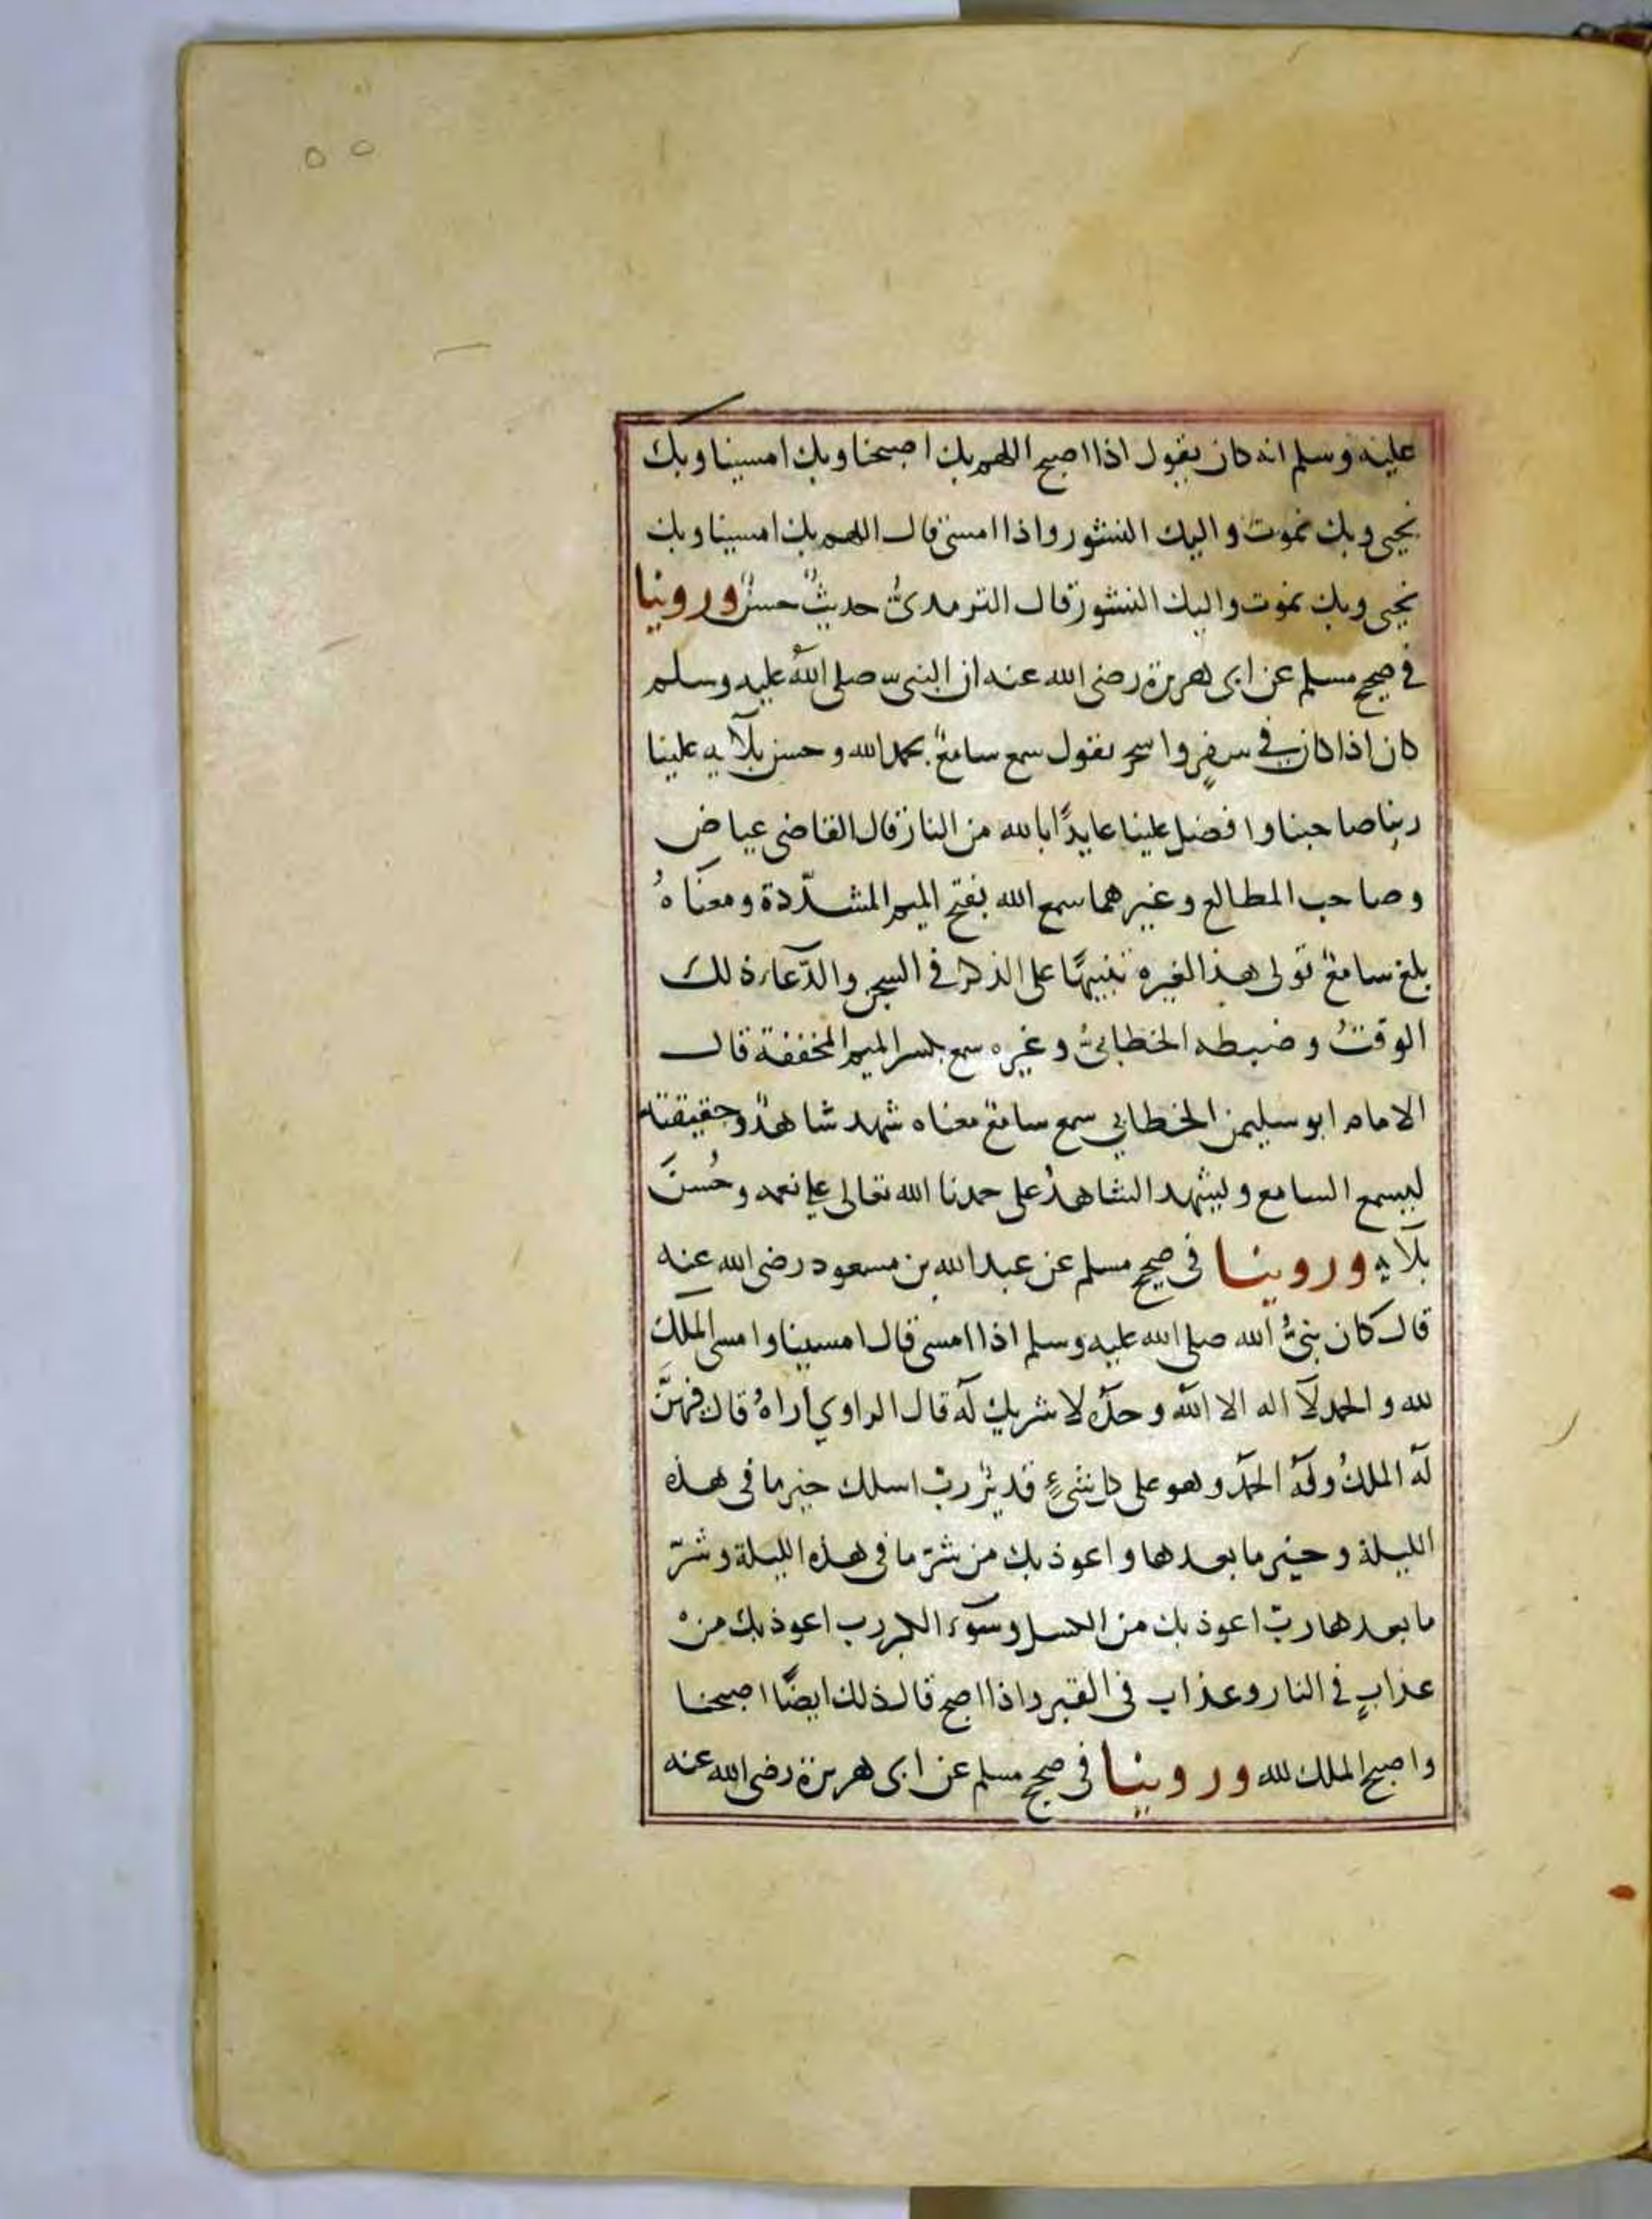 ٥٥
عليه وسلم انه كان يقول اذا اصبح اللهم بك اصبحنا وبك امسينا وبك
نحيى وبك نموت واليك النشور واذا امسى قال اللهم بك امسينا وبك
نحيى وبك نموت واليك النشور قال الترمذىُّ حديثٌ حسنٌ وروينا
في صحيح مسلم عن ابى هريرة رضى الله عنه ان النبى صلى الله عليه وسلم
كان اذا كان في سفرٍ واسحر يقول سمع سامعٌ بحمد الله وحسن بلآيه علينا
ربنا صاحبنا وافضل علينا عايذًا بالله من النار قال القاضى عياض
وصاحب المطالع وغيرهما سمع الله بفتح الميم المشدّدة ومعناهُ
بلغ سامعٌ قولى هذا لغيره تنبيهًا على الذكر في السحر والدّعاء ذلك
الوقتُ وضبطه الخطابىُّ وغيره سمع بكسر الميم المخففة قال
الامام ابو سليمن الخطابي سمع سامعٌ معناه شهد شاهدٌ وحقيقته
ليسمع السامع وليشهد الشاهدُ على حمدنا الله تعالى على نعمه وحُسن
بلآيه وروينا فى صحيح مسلم عن عبد الله بن مسعود رضى الله عنه
قال كان نبىُّ الله صلى الله عليه وسلم اذا امسى قال امسينا وامسى الملك
لله والحمد لآ اله الا الله وحدَهُ لا شريك لَه قال الراوي أراهُ قال فيهنَّ
لَه الملكُ ولَه الحمدُ وهو على كل شىءٍ قديرٌ ربّ اسلك خير ما فى هذه
الليلة وخير ما بعدها واعوذ بك من شرّ ما فى هذه الليلة وشرّ
ما بعدها ربّ اعوذ بك من الكسل وسوٓء الكبر رب اعوذ بك منْ
عذابٍ في النار وعذاب فى القبر واذا اصبح قال ذلك ايضًا اصبحنا
واصبح الملك لله وروينا فى صحيح مسلم عن ابى هريرة رضى الله عنه